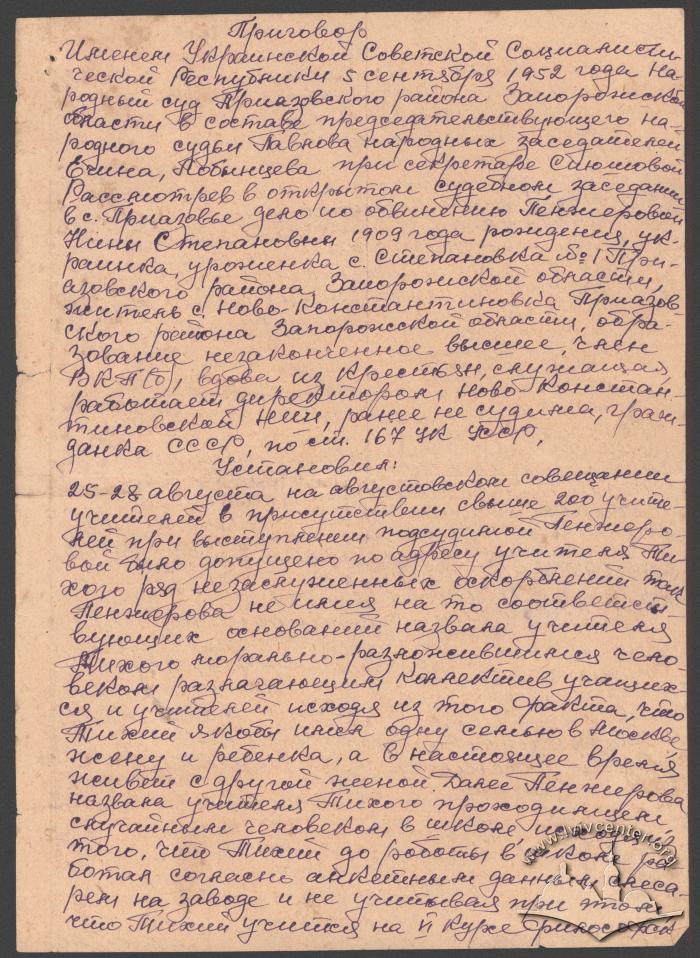 Приговор
Именем Украинской Советской Социалисти-
ческой Республики 5 сентября 1952 года На-
родный суд Приазовского района Запорожской
области в составе председательствующего на-
родного судьи Павлова народных заседателей
Ечина, Лобынцева при секретаре
Рассмотрев в открытом судебном заседании
в с. Приазовье дело по обвинению Пенжеровой
Нины Степановны 1909 года рождения, ук-
раинка, уроженка с. Степановка № 1 При-
азовского района Запорожской области,
житель с. Ново-Константиновка Приазов-
ского района Запорожской области, обра-
зование незаконченное высшее, член
ВКП(б), вдова из крестьян, служащая,
работает директором Ново-Констан-
тиновской , ранее не судима, граж-
данка СССР, по ст. 167 УК УССР,
Установил:
25-28 августа на августовском совещании
учителей в присутствии свыше 200 учите-
лей при выступлении подсудимой Пенжеро-
вой было допущено по адресу учителя Ти-
хого ряд незаслуженных оскорблений так
Пенжерова не имея на то соответст-
вующих оснований назвала учителя
Тихого морально-разложившимся чело-
веком разлагающим коллектив учащих-
ся и учителей исходя из того факта, что
Тихий якобы имел одну семью в Москве
жену и ребенка, а в настоящее время
живет с другой женой. Далее Пенжерова
назвала учителя Тихого проходимцем
случайным человеком в школе исходя из
того, что Тихий до работы в школе ра-
ботал согласно анкетным данным слеса-
рем на заводе и не учитывая при этом
что Тихий учится на VI курсе философск
www.lvivcenter.org